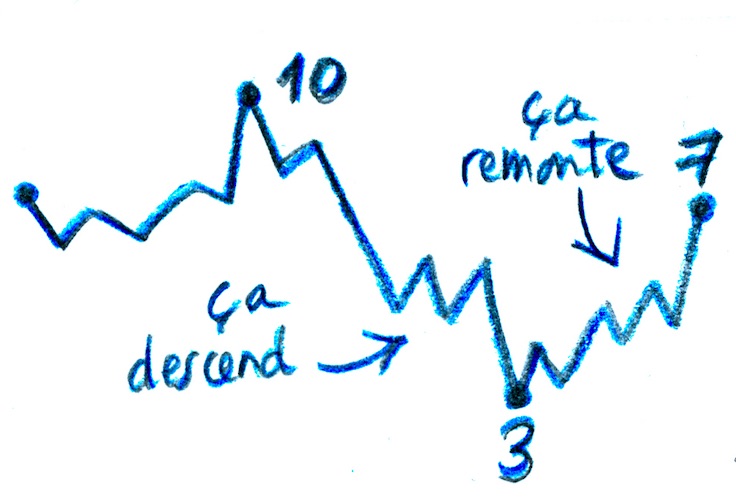 10
ça
remonte
7
ça
descend
3